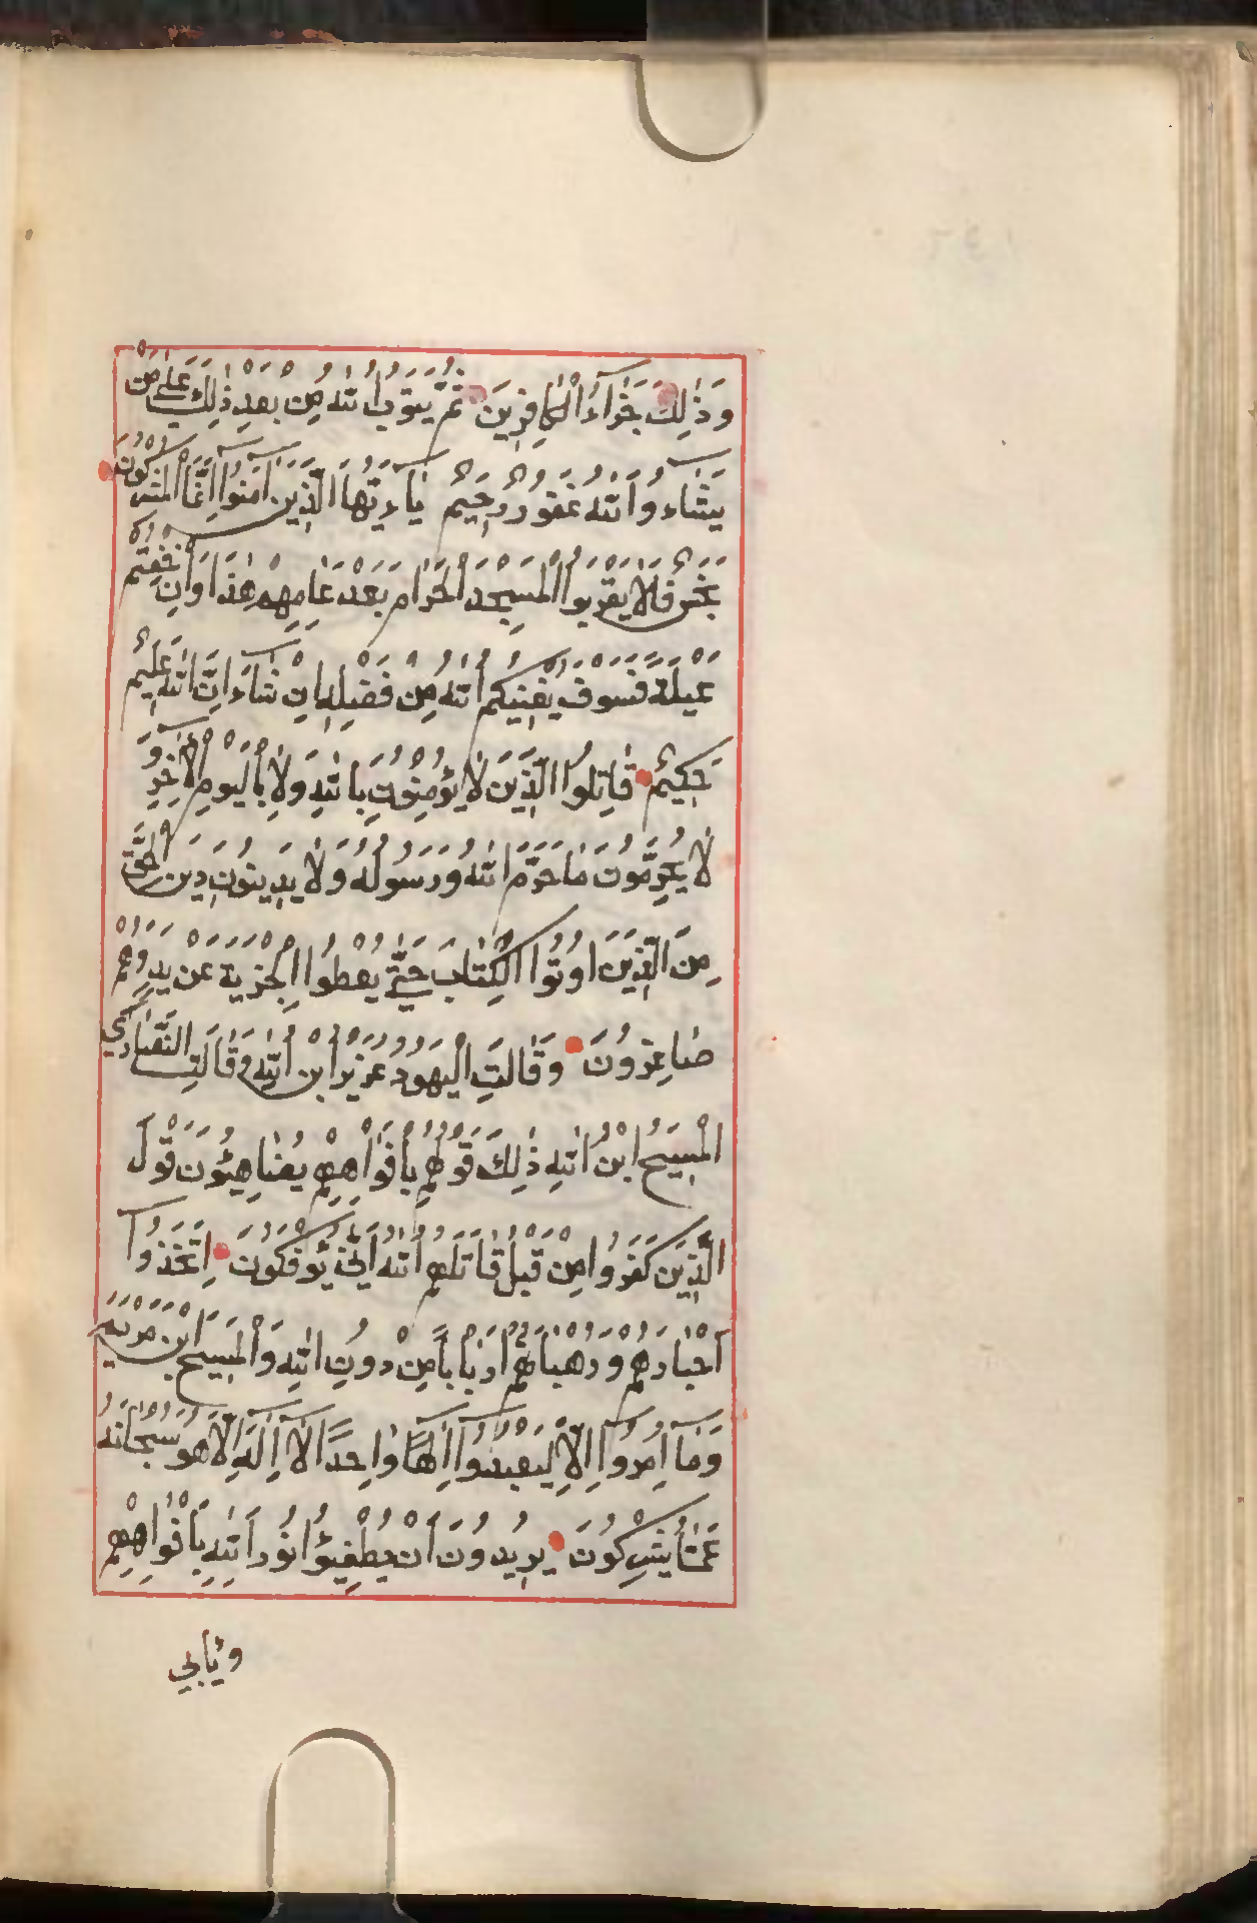 وَذٰلِكَ جَزَاءُ الْكَافِرِينَ ثُمَّ يَتُوبُ اللّٰهُ مِنْ بَعْدِ ذٰلِكَ عَلٰى مَنْ
يَشَاءُ وَاللّٰهُ غَفُورٌ رَحِيمٌ يَاءَيُّهَا الَّذِينَ آمَنُوا إِنَّمَا الْمُشْرِكُونَ
نَجَسٌ فَلَا يَقْرَبُوا الْمَسْجِدَ الْحَرَامَ بَعْدَ عَامِهِمْ هٰذَا وَاِنْ خِفْتُمْ
عَيْلَةً فَسَوْفَ يُغْنِيكُمُ اللّٰهُ مِنْ فَضْلِهِ اِنْ شَاءَ اِنَّ اللّٰهَ عَلِيمٌ
حَكِيمٌ قَاتِلُوا الَّذِينَ لَا يُؤْمِنُونَ بِاللّٰهِ وَلَا بِالْيَوْمِ الْآخِرِ وَ
لَا يُحَرِّمُونَ مَا حَرَّمَ اللّٰهُ وَرَسُولُهُ وَلَا يَدِينُونَ دِينَ الْحَقِّ
مِنَ الَّذِينَ اُوتُوا الْكِتَابَ حَتَّى يُعْطُوا الْجِزْيَةَ عَنْ يَدٍ وَهُمْ
صَاغِرُونَ وَقَالَتِ الْيَهُودُ عُزَيْرُ ابْنُ اللّٰهِ وَقَالَتِ النَّصَارٰى
الْمَسِيحُ ابْنُ اللّٰهِ ذٰلِكَ قَوْلُهُمْ بِأَفْوَاهِهِمْ يُضَاهِئُونَ قَوْلَ
الَّذِينَ كَفَرُوا مِنْ قَبْلُ قَاتَلَهُمُ اللّٰهُ اَنّٰى يُؤْفَكُونَ اِتَّخَذُوا
اَحْبَارَهُمْ وَرُهْبَانَهُمْ اَرْبَابًا مِنْ دُونِ اللّٰهِ وَالْمَسِيحَ ابْنَ مَرْيَمَ
وَمَا اُمِرُوا اِلَّا لِيَعْبُدُوا اِلٰهًا وَاحِدًا لَا اِلٰهَ اِلَّا هُوَ سُبْحَانَهُ
عَمَّا يُشْرِكُونَ يُرِيدُونَ اَنْ يُطْفِئُوا نُورَ اللّٰهِ بِاَفْوَاهِهِمْ
ويابى